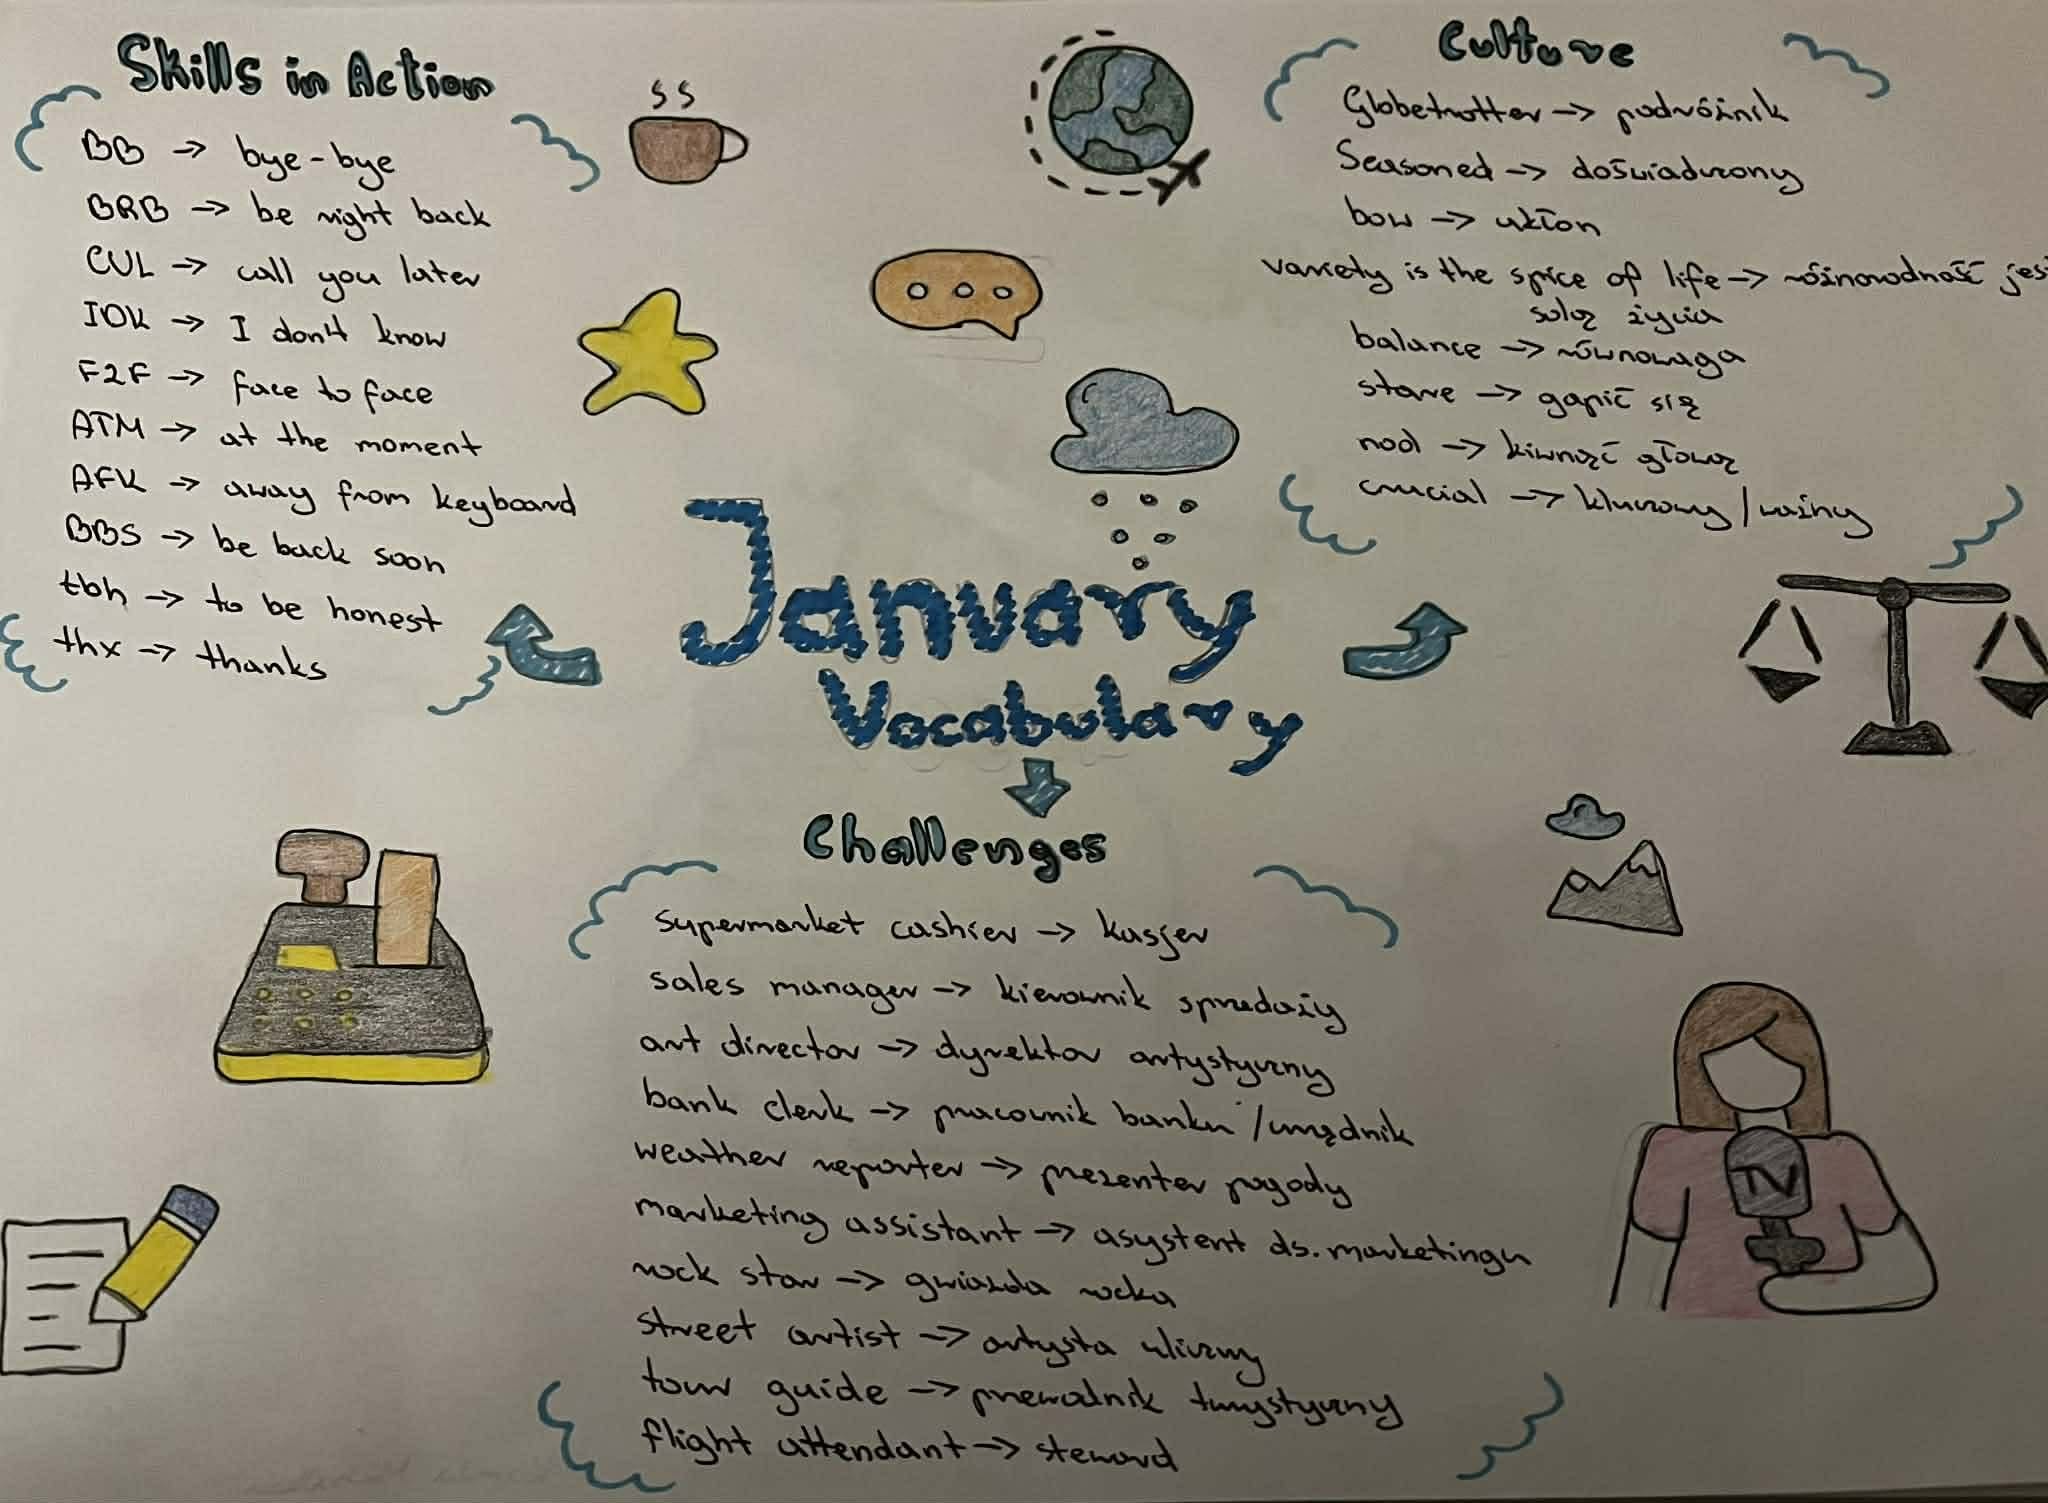 Skills in Action
BB → bye-bye
BRB → be right back
CUL → call you later
IDK → I don't know
F2F → face to face
ATM → at the moment
AFK → away from keyboard
BBS → be back soon
tbh → to be honest
thx → thanks
Culture
Globetrotter → podróżnik
Seasoned → doświadczony
bow → ukłon
variety is the spice of life → różnorodność jest
solą życia
balance → równowaga
stare → gapić się
nod → kiwnąć głową
crucial → kluczowy / ważny
January
Vocabulary
Challenges
supermarket cashier → kasjer
sales manager → kierownik sprzedaży
art director → dyrektor artystyczny
bank clerk → pracownik banku / urzędnik
weather reporter → prezenter pogody
marketing assistant → asystent ds. marketingu
rock star → gwiazda rocka
street artist → artysta uliczny
tour guide → przewodnik turystyczny
flight attendant → steward
TV